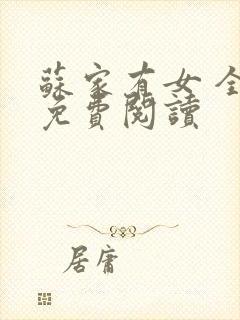 蘇家有女 全
免費閱讀
居庸